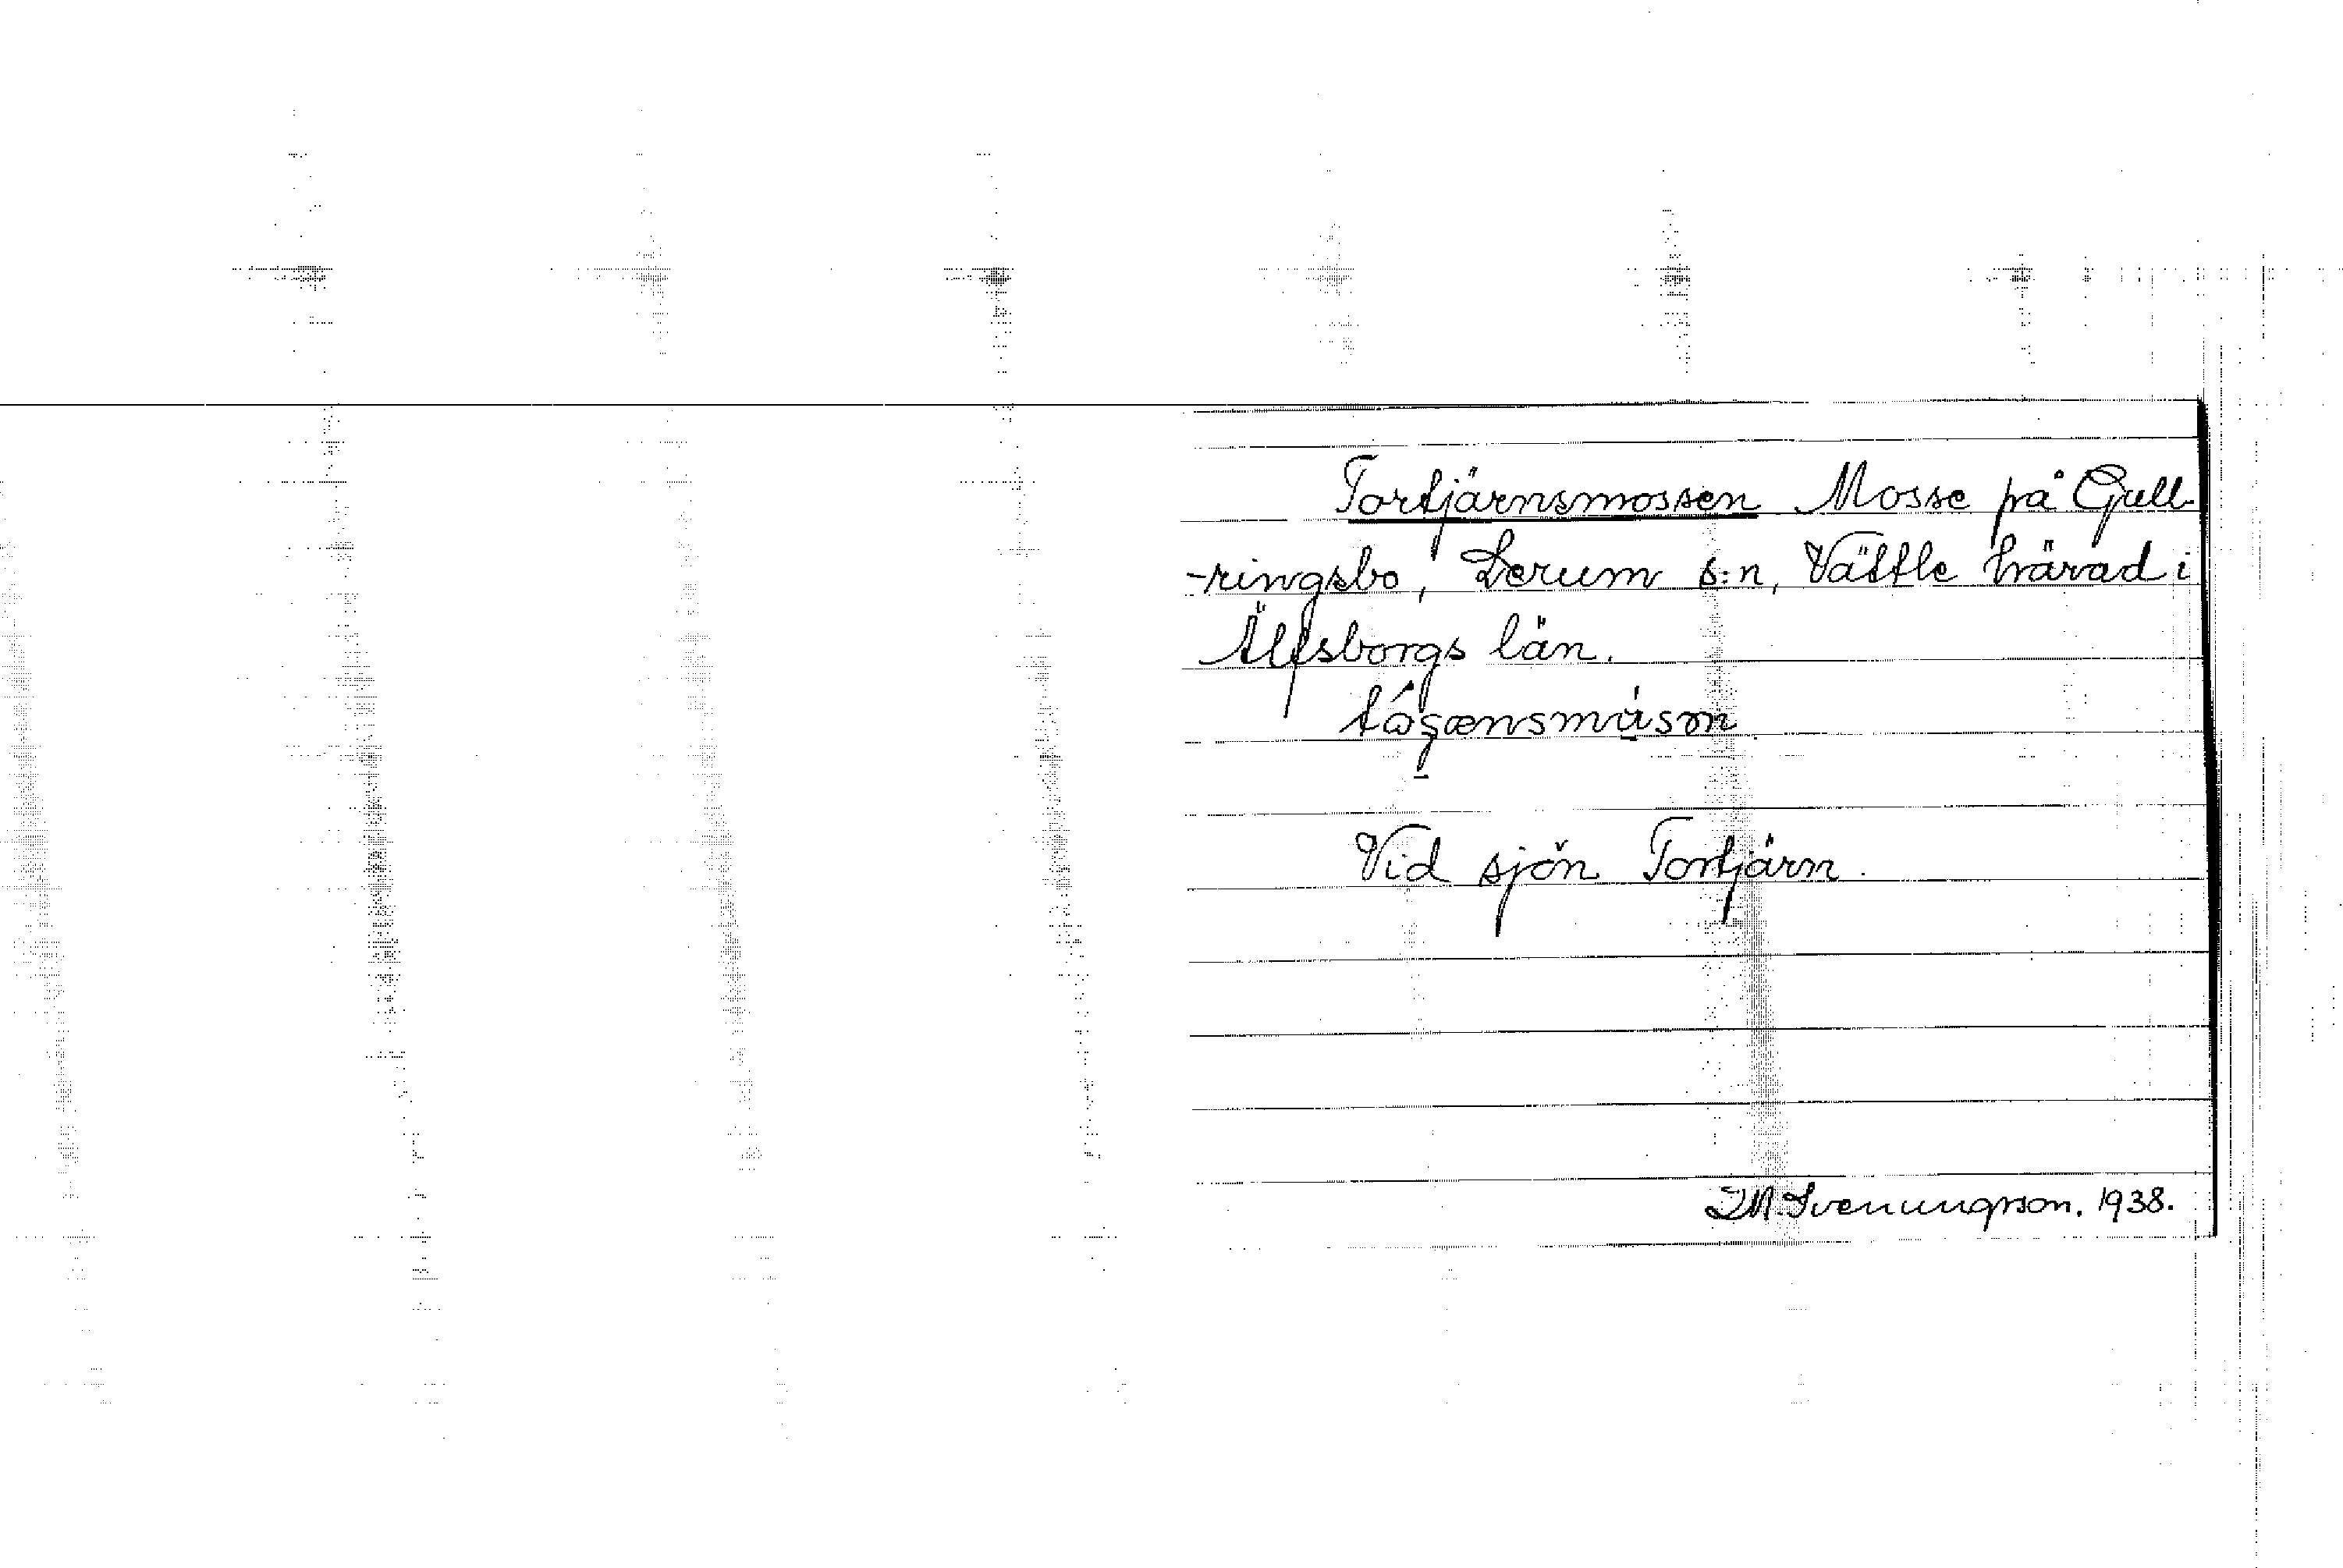 Tortjärnsmossen Mosse på Gull
-ringsbo, Lerum s:n, Vättle härad i
Älfsborgs län.
Vid sjön Tortjärn.
I.M. Svenungsson. 1938.